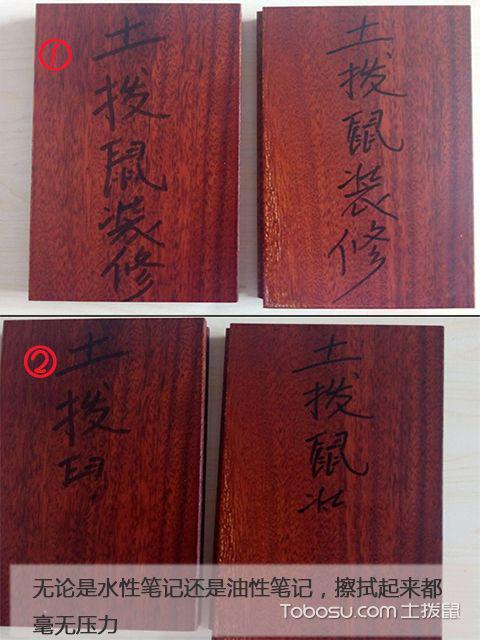 ①
土拨鼠装修
土拨鼠装修
②
土拨
土拨鼠
无论是水性笔记还是油性笔记，擦拭起来都
毫无压力
Tobosu.com土拨鼠